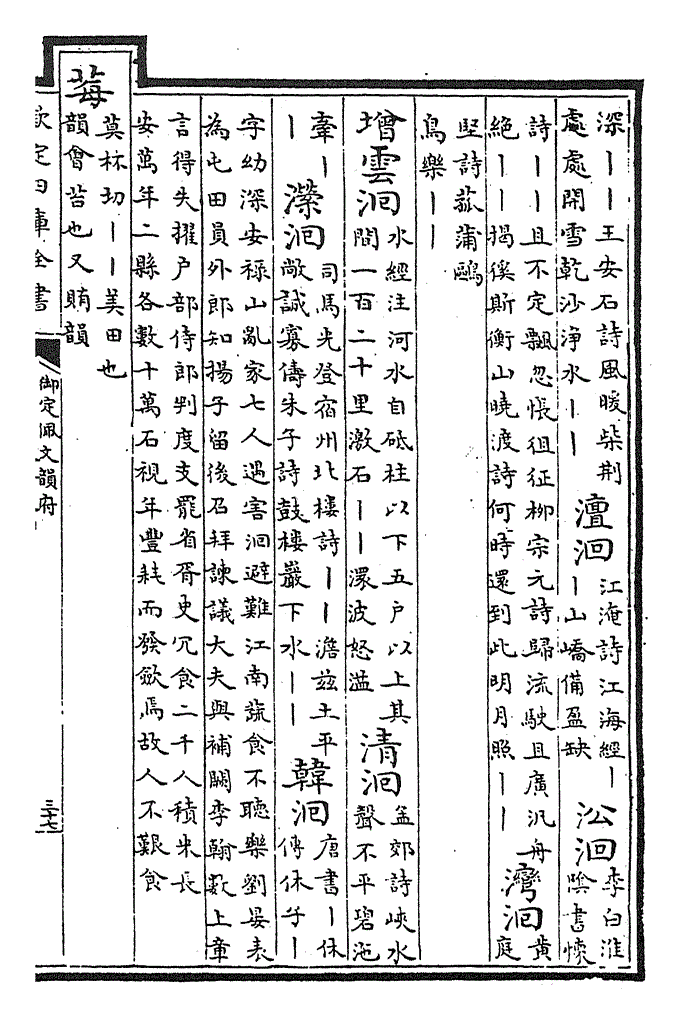 深丨丨王安石詩風暖柴荆
處處開雪乾沙淨水丨丨
澶洄
江淹詩江海經丨
丨山嶠備盈缺
㳂洄
李白淮
陰書懷
詩丨丨且不定飄忽悵徂征柳宗元詩歸流駛且廣汎舟
絶丨丨揭徯斯衡山曉渡詩何時還到此明月照丨丨
灣洄
黄
庭
堅詩菰蒲鷗
鳥樂丨丨
增雲洄
水經注河水自砥柱以下五户以上其
間一百二十里激石丨丨澴波怒溢
清洄
孟郊詩峽水
聲不平碧沲
牽丨
丨
濴洄
司馬光登宿州北樓詩丨丨澹兹土平
敞誠寡儔朱子詩鼓樓巖下水丨丨
韓洄
唐書丨休
傳休子丨
字幼深安祿山亂家七人遇害洄避難江南蔬食不聽樂劉晏表
為屯田員外郎知揚子留後召拜諫議大夫與補闕李翰數上章
言得失擢户部侍郎判度支罷省胥吏冗食二千人積米長
安萬年二縣各數十萬石視年豐耗而發斂焉故人不艱食
莓
莫杯切丨丨美田也
韻會苔也又賄韻
欽定四庫全書
御定佩文韻府
三十七